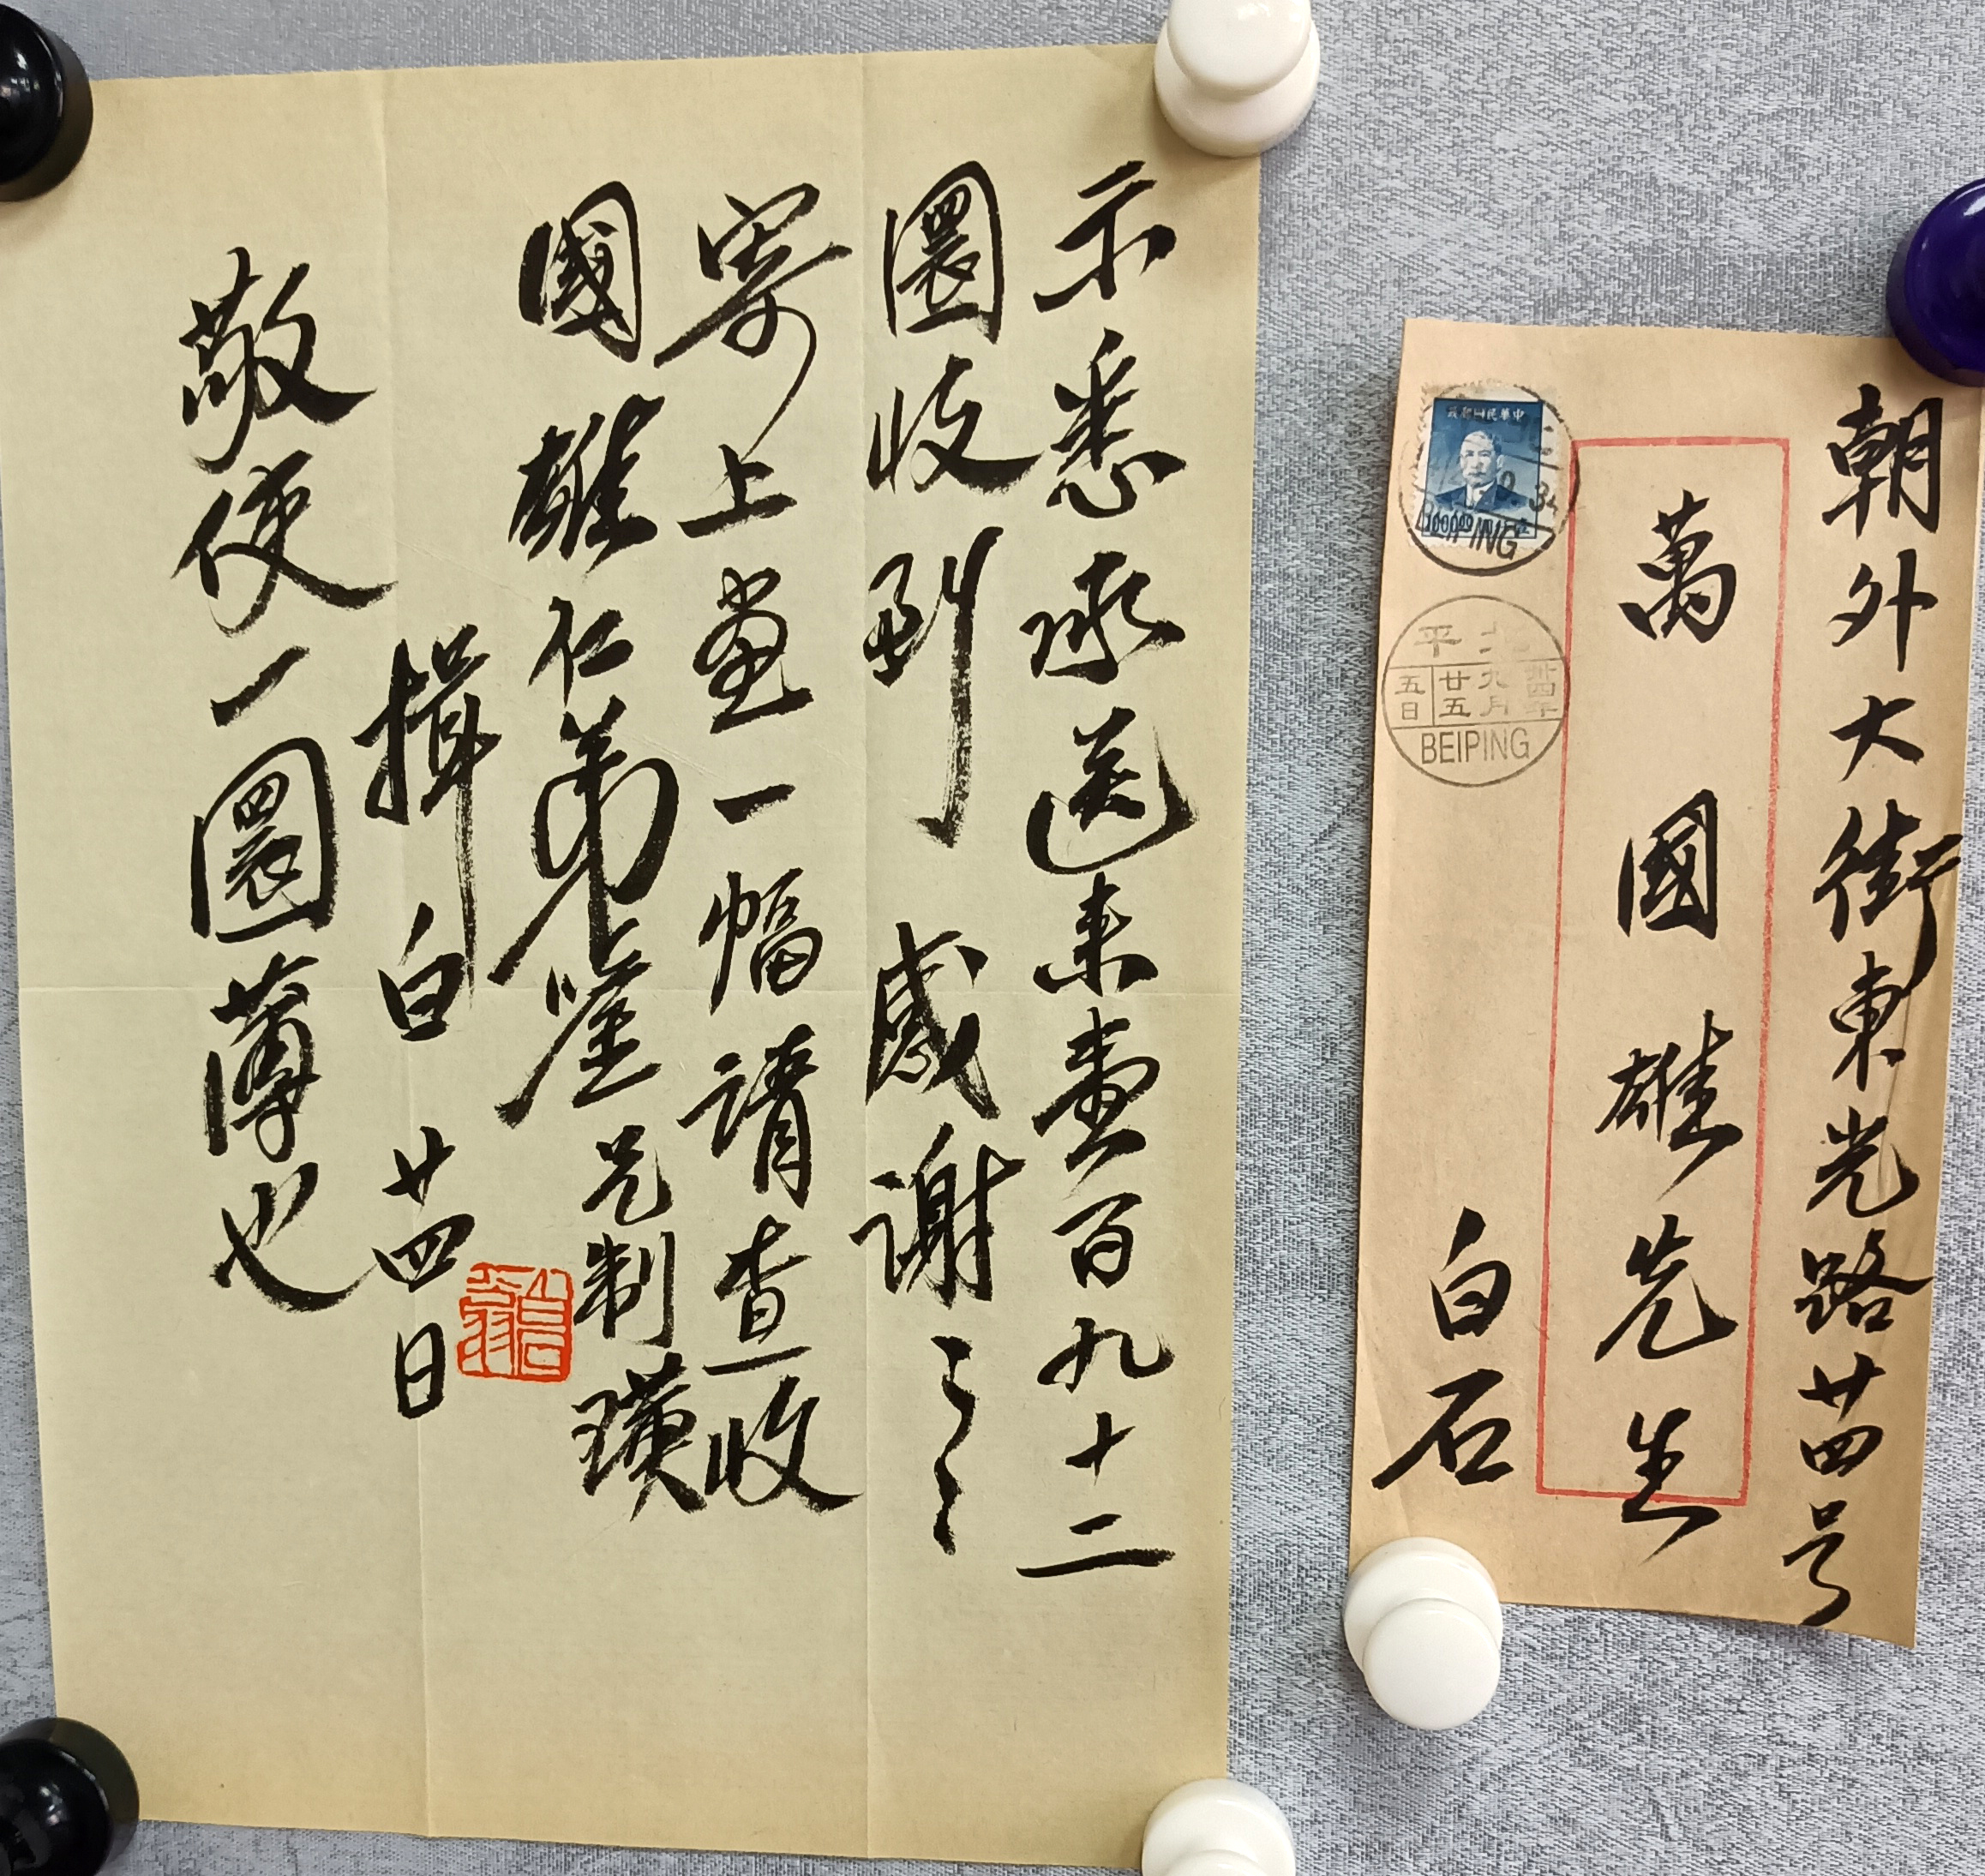 示悉承送来壹百九十二
圜收到感谢〻〻
寄上画一幅請查收
國雄仁弟鉴兄制璜
揖白廿四日
敬使一圜薄也
白石翁
朝外大街東光路廿四号
萬國雄先生
白石
中華民國郵政
1000
BEIPING
北平
卅四年
九月
廿五
五日
BEIPING